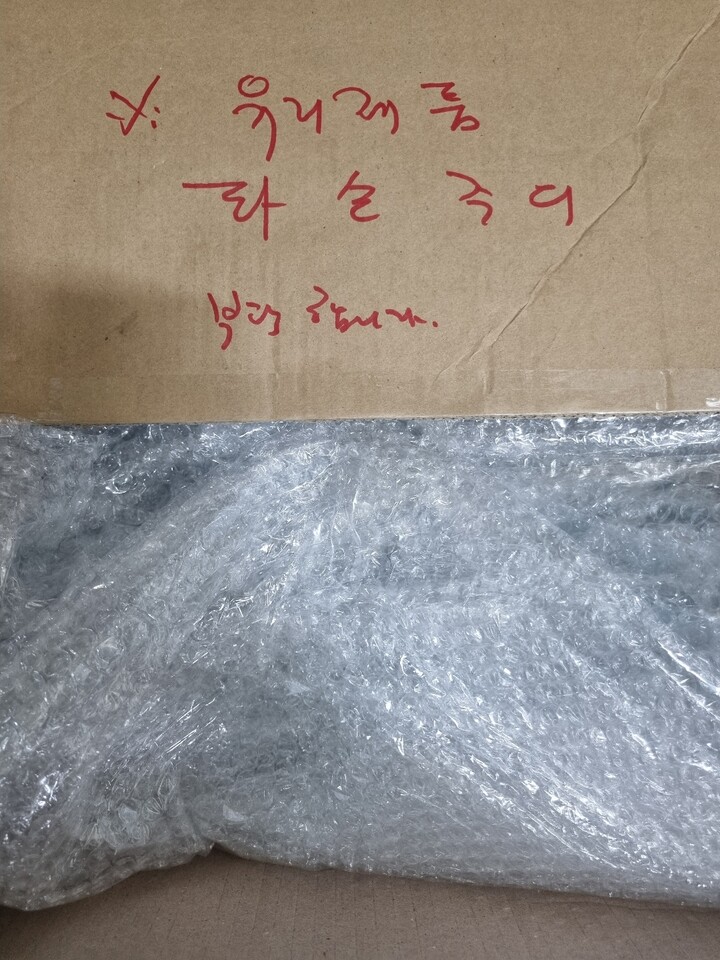 ※ 유리제품
파손주의
부탁합니다.